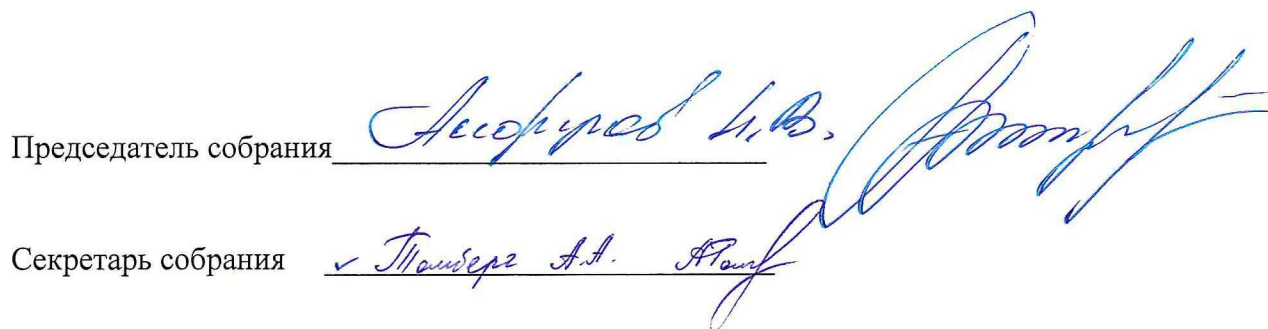 Председатель собрания И.В.
Секретарь собрания Томберг А.А.